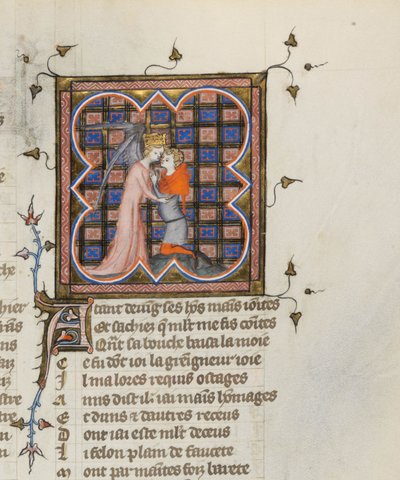 Atant deuing ses hõs mains iointes
Et sachiez q̃ mlt me fis cointes
Qñt sa bouche baisa la moie
C e fu dõt ioi la greigneur ioie
I l ma lores requis ostages
A mis dist il iai mains hõmages
E t duns et dautres receus
D ont iai este mlt deceus
L i felon plain de faucete
M ont par maintes foiz barete